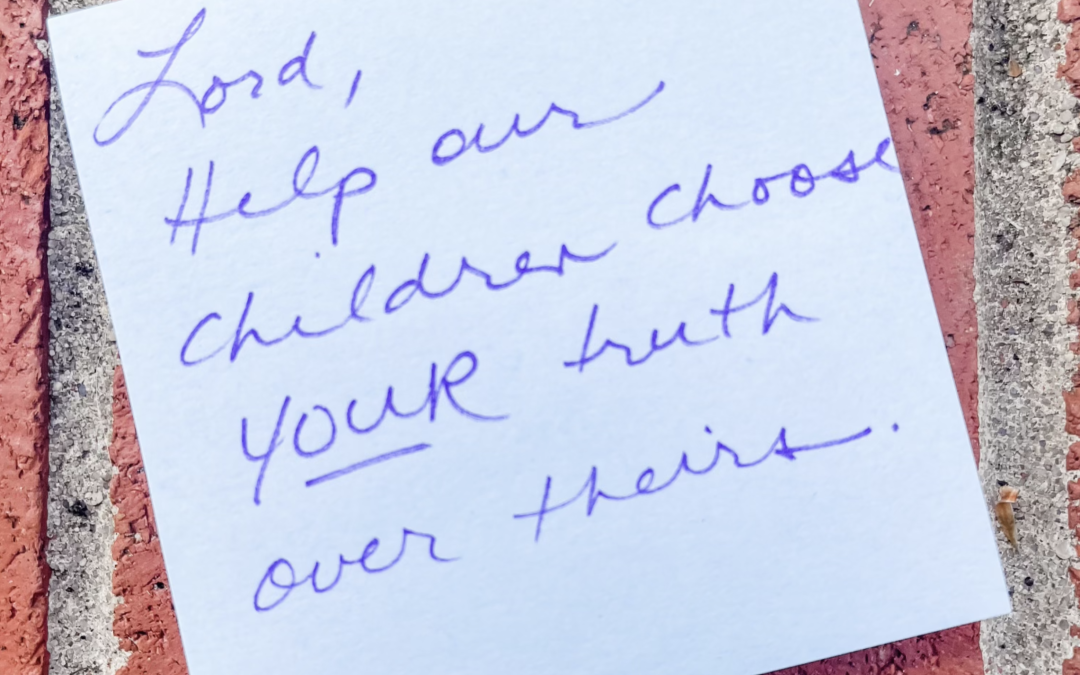 Lord,
Help our
children choose
YOUR truth
over theirs.